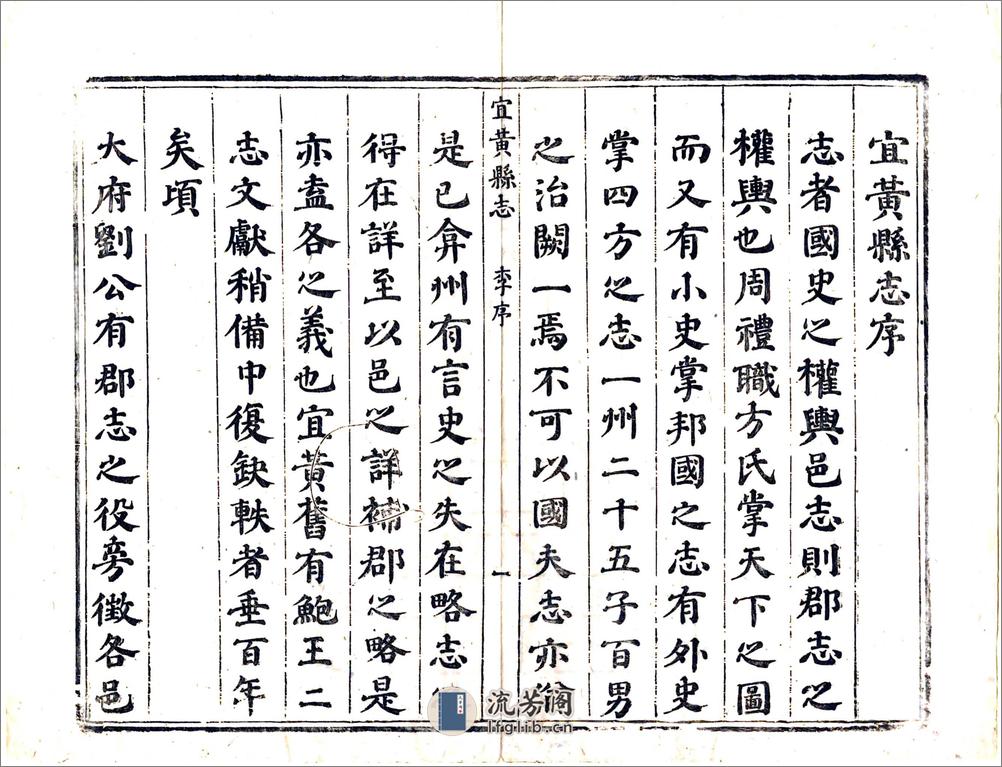 宜黃縣志序
志者國史之權輿邑志則郡志之
權輿也周禮職方氏掌天下之圖
而又有小史掌邦國之志有外史
掌四方之志一州二十五子百男
之治闕一焉不可以國夫志亦
宜黃縣志 李序 一
是已弇州有言史之失在略志
得在詳至以邑之詳補郡之略是
亦盍各之義也宜黃舊有鮑王二
志文獻稍備中復缺軼者垂百年
矣頃
大府劉公有郡志之役旁徵各邑
流芳阁
lfglib.cn